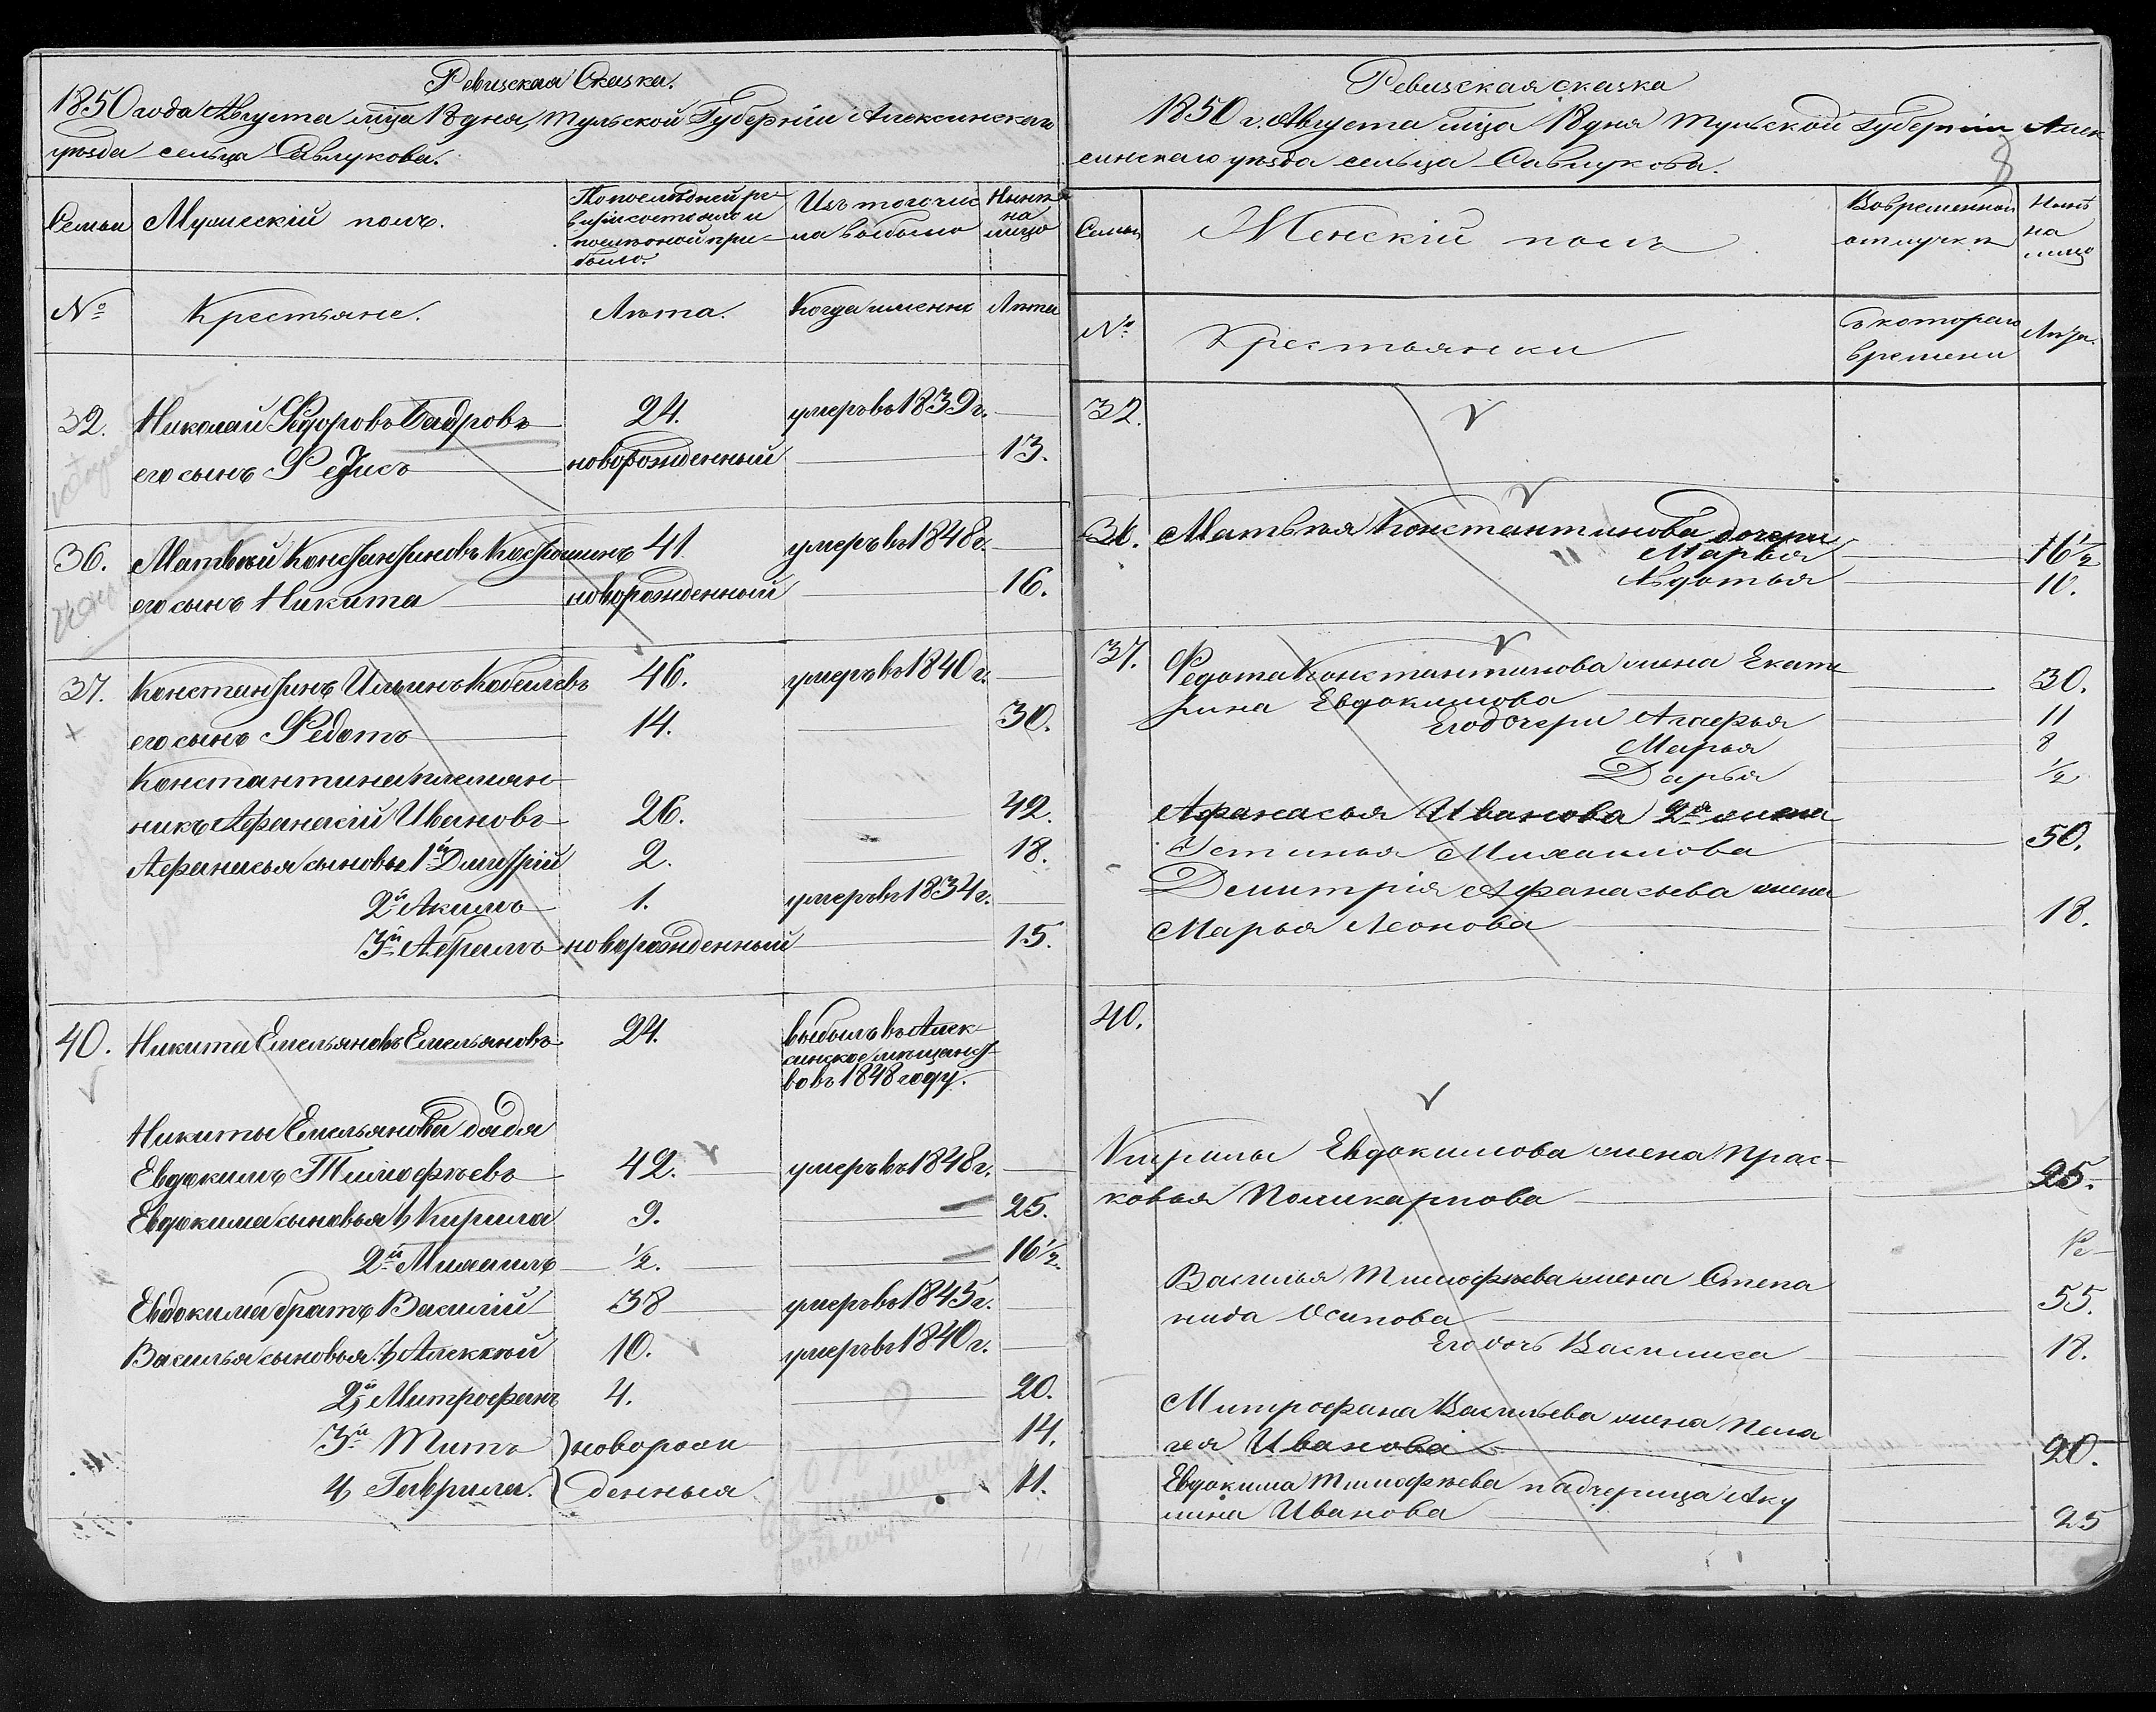 Ревизская Сказка.
1850 года Августа мца 18 дня, Тульской Губерніи Алексинскаго
уѣзда сельца Савлукова.
Семьи
Мужескій полъ.
По послѣдней ре-
визіи состояло и
послѣ оной при-
было.
Изъ того чис
ла выбыло
Нынѣ
на
лицо
№
Крестьяне.
Лѣта.
Когда именно
Лѣта
32. Николай Федоровъ 24. умеръ въ 1839 г.
его сынъ новорожденный 13.
36. Матвѣй Константиновъ Костюшинъ 41 умеръ въ 1848 г.
его сынъ Никита новорожденный 16.
37. Константинъ Ильинъ Кобелевъ 46. умеръ въ 1840 г.
его сынъ Федотъ 14. 30.
Константина племян-
никъ Афанасій Ивановъ 26. 42.
Афанасья сыновья 1й Дмитрій 2. 18.
2й Акимъ 1. умеръ въ 1834 г.
3й Абрамъ новорожденный 15.
40. Никита Емельяновъ Емельяновъ 24. выбылъ въ Алек-
синское мѣщанст-
во въ 1848 году.
Никиты Емельянова дядя
Евдокимъ Тимофѣевъ 42. умеръ въ 1848 г.
Евдокима сыновья 1, Кирила 9. 25.
2й Михаилъ ½. 16½.
Евдокима братъ Василій 38 умеръ въ 1845 г.
Василья сыновья 1, Алексѣй 10. умеръ въ 1840 г.
2й Митрофанъ 4. 20.
3й Титъ ) новорож 14.
4, Гаврила. ) денныя 11.
Ревизская сказка
1850 г. Августа мца 18 дня Тульской губерніи Алек
синскаго уѣзда сельца Савлукова.
8
Семьи
Женскій полъ
Во временной
отлучкѣ
Нынѣ
на
лицо
№
Крестьянки
Съ котораго
времени
Лѣта.
32.
36. Матвѣя Константинова дочери
Марья 16½
Авдотья 10.
37. Федота Константинова жена Екате
рина Евдокимова 30.
Его дочери Агафья 11
Марья 8
Дарья ½
Афанасья Иванова 2я жена
Устинья Михаилова 50.
Дмитрія Афанасьева жена
Марья Леонова 18.
40.
Кирилы Евдокимова жена Прас-
ковья Поликарпова 25.
Василья Тимофѣева жена Степа
нида Осипова 55.
Его дочь Василиса 18.
Митрофана Васильева жена Пела
гея Иванова 20.
Евдокима Тимофѣева падчерица Аку
лина Иванова 25